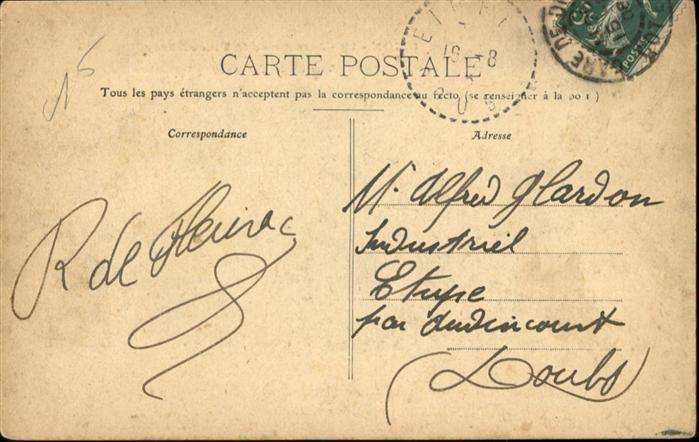 15
CARTE POSTALE
Tous les pays étrangers n'acceptent pas la correspondance au recto (se renseigner à la poste)
Correspondance
Adresse
R de Fleurac
Mr. Alfred Glardon
Industriel
Etupe
par Audincourt
(Doubs)